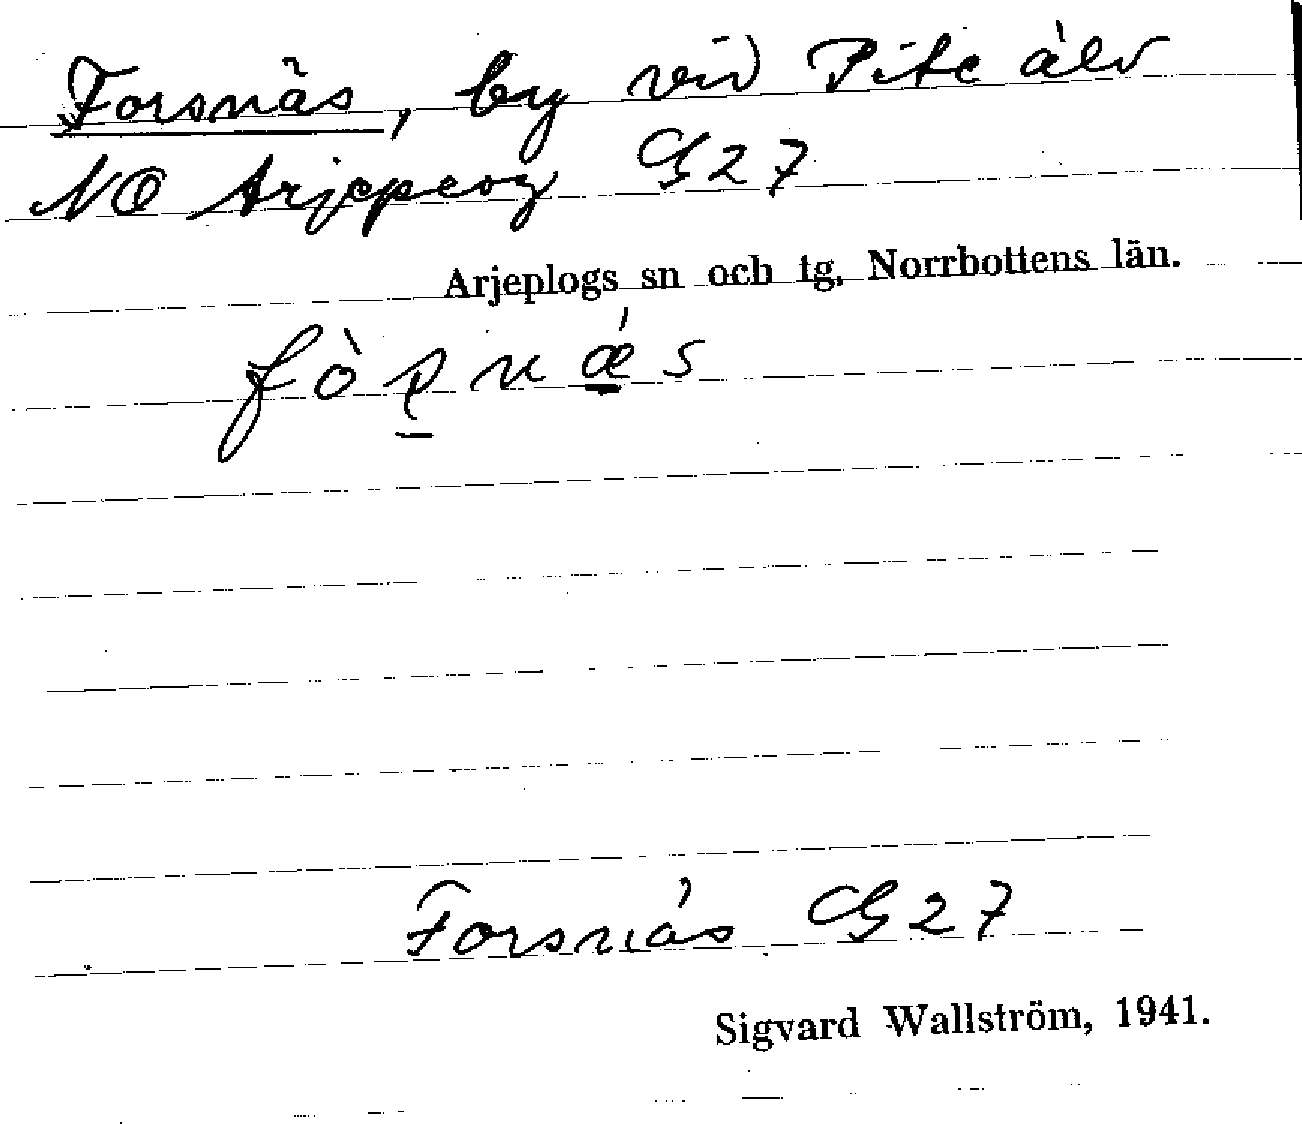 Forsnäs, by vid Pite älv
NO Arjeplog G27
Arjeplogs sn och tg, Norrbottens län.
Forsnäs G27
Sigvard Wallström, 1941.